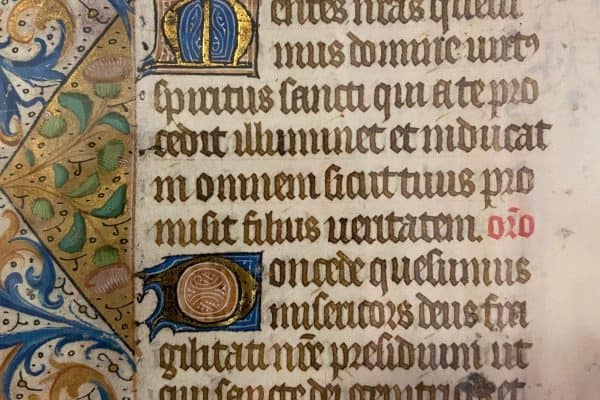 Mentes nras quesu
mus domine virtꝰ
spiritus sancti qui a te pro
cedit illuminet et inducat
in omnem sicut tuus pro
misit filius veritatem. oro
Concede quesumus
misericors deus fra
gilitati nre presidium ut
qui sancte dei genitricis et